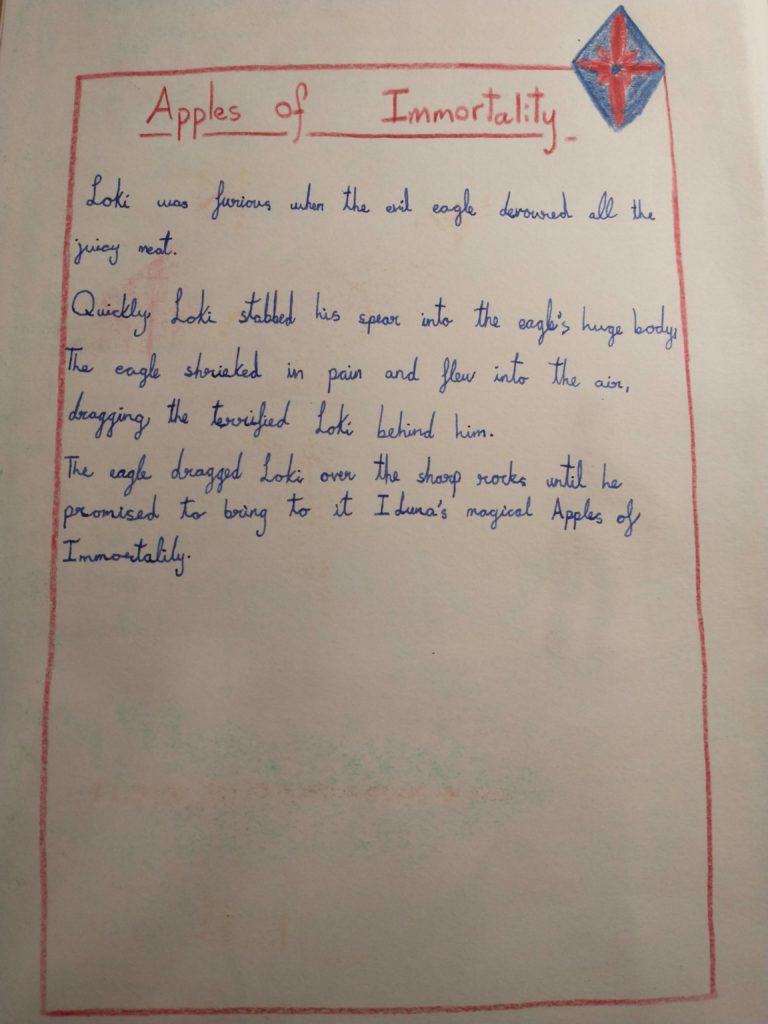 Apples of Immortality
Loki was furious when the evil eagle devoured all the
juicy meat.
Quickly Loki stabbed his spear into the eagle's huge body,
The eagle shrieked in pain and flew into the air,
dragging the terrified Loki behind him.
The eagle dragged Loki over the sharp rocks until he
promised to bring to it Iduna's magical Apples of
Immortality.